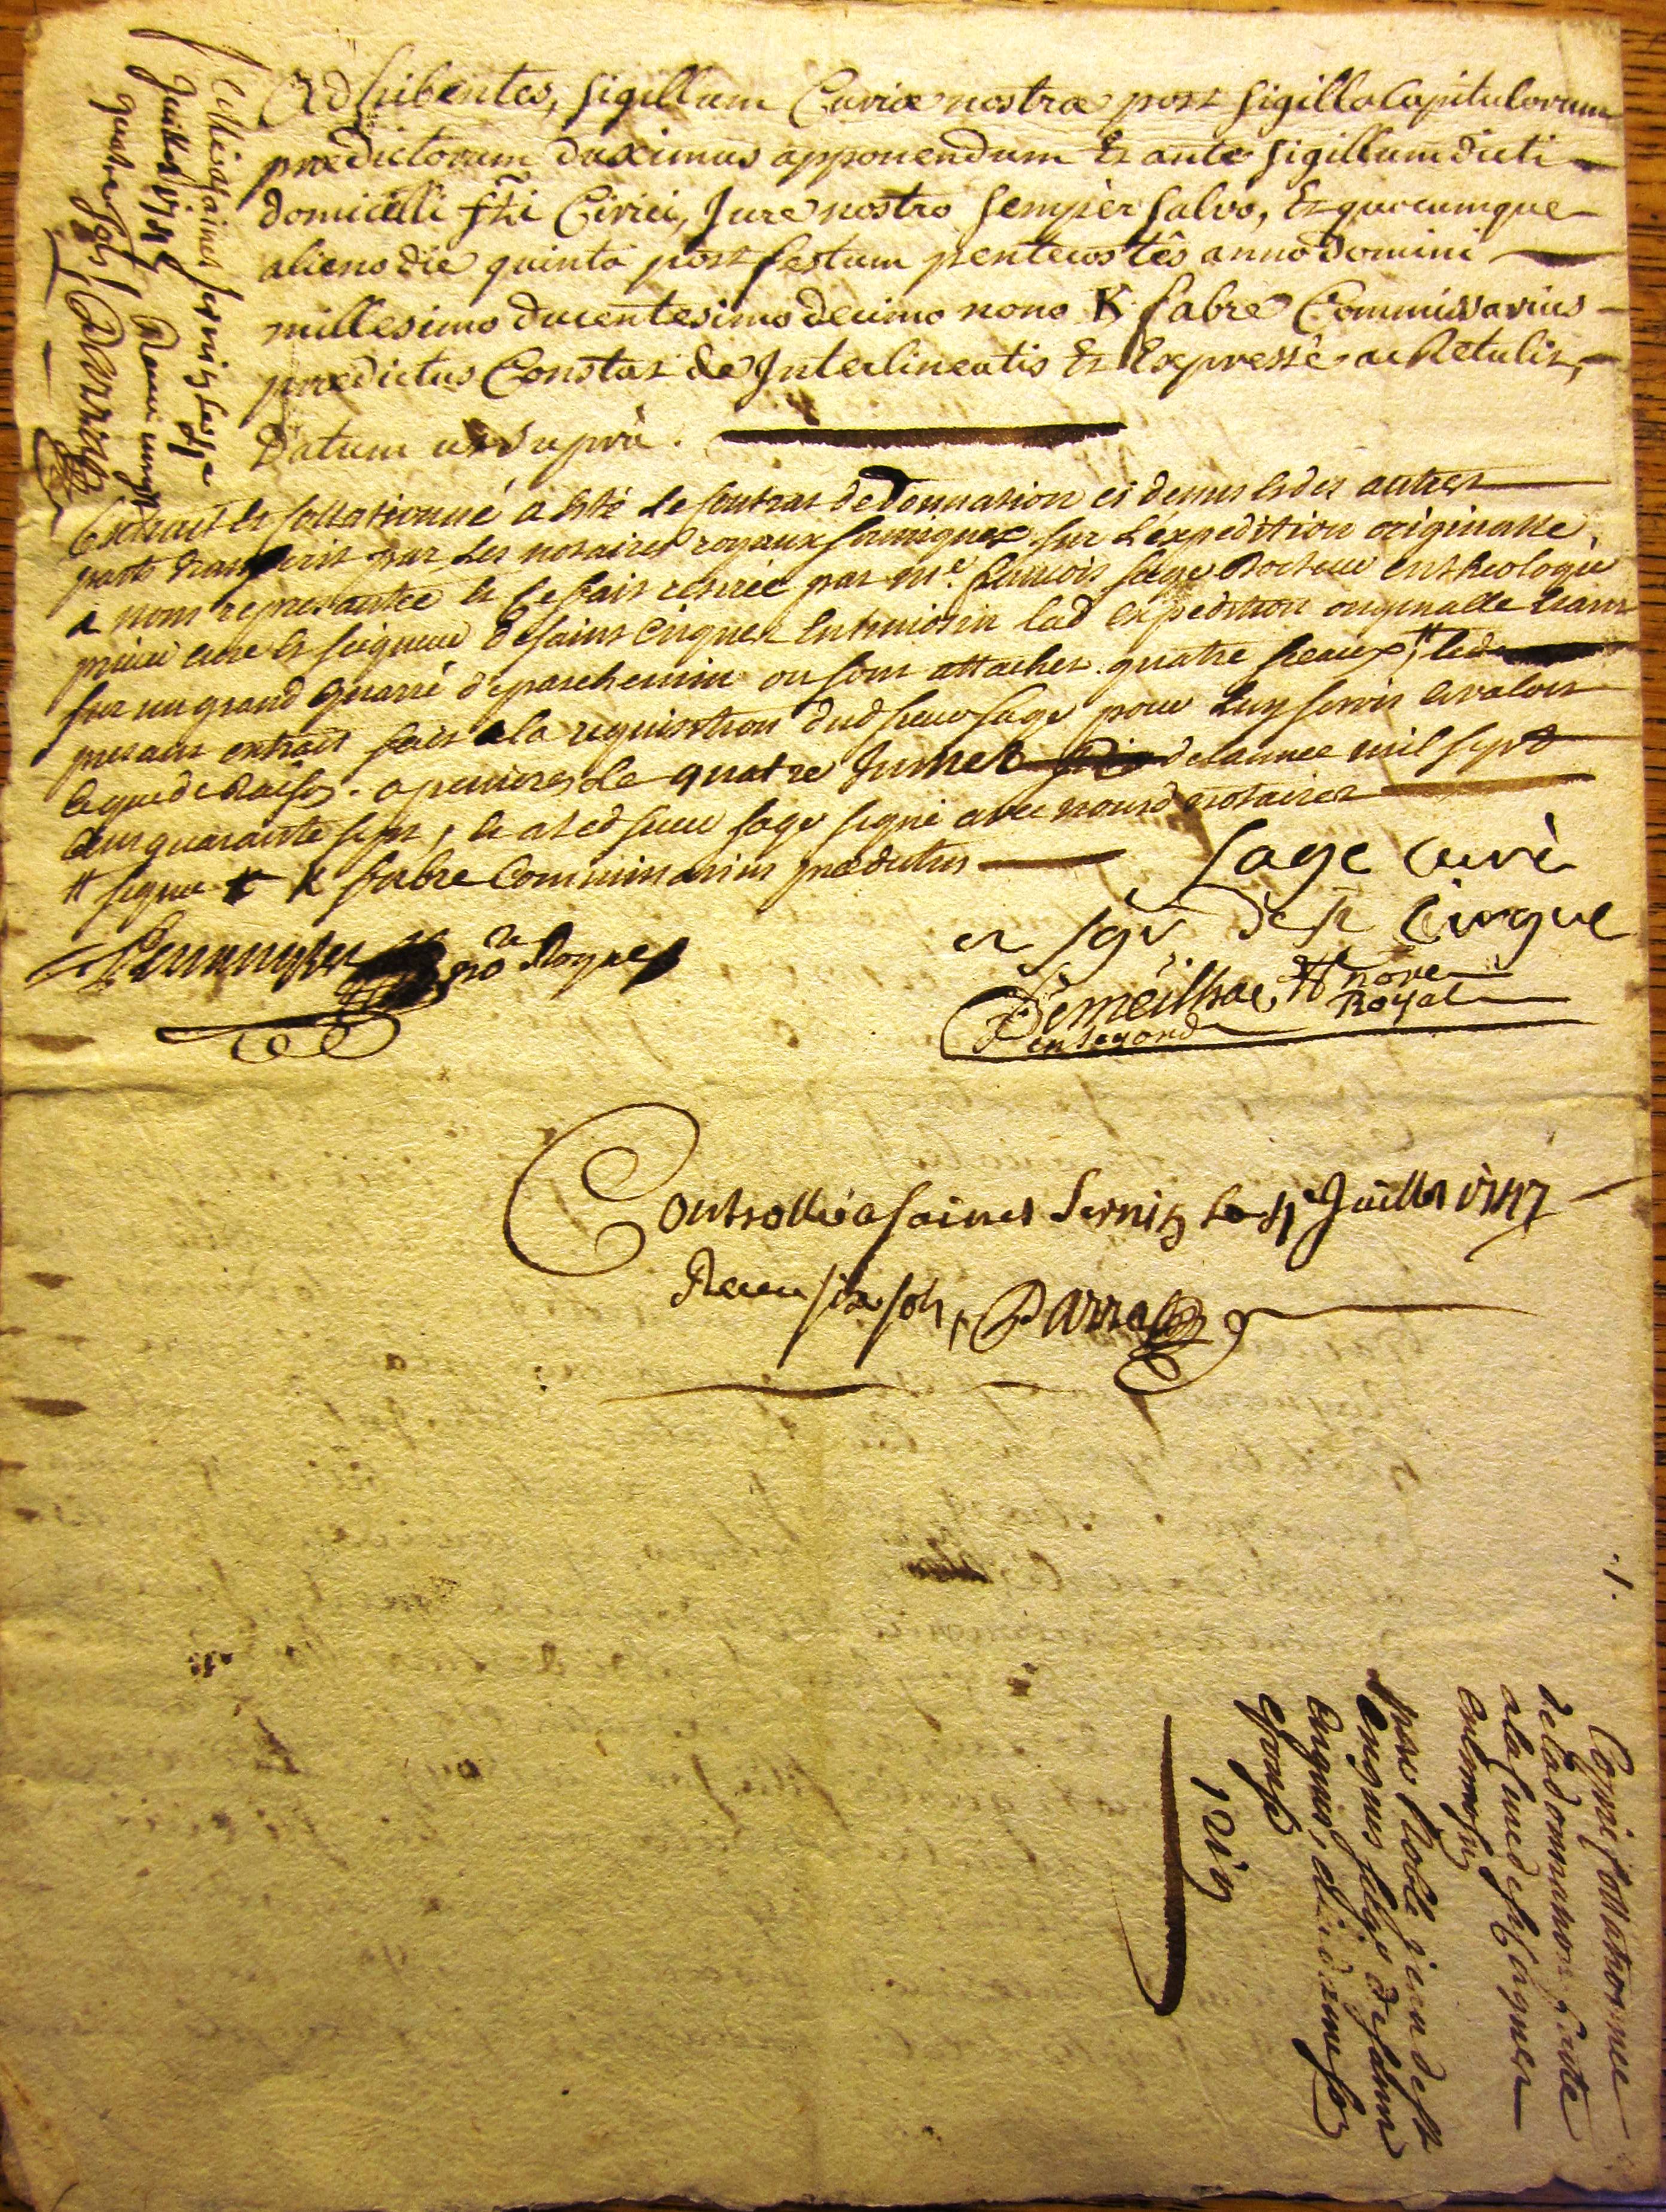 Adhibentes, sigillum Curiæ nostræ post sigilla Capitulorum
prædictorum duximus apponendum Et ante sigillum dicti
domicilli sti Cirici, Jure nostro semper salvo, Et quocumque
alieno die quinta post festum pentecostès anno domini
millesimo ducentesimo decimo nono K fabre Commissarius
prædictus Constat de Interlineatis Et Expressè ac Retulit,
Datum ut suprà.
Extrait et Collationné a esté le Contrat de Donnation ci dernier et des autres
parts transcrit par les notaires royaux soussignez sur l'expedition originalle,
a nous representée et ce fait retirée par me. francois sage Docteur en theologie
prieur curé et seigneur de saint Cirgues lad expedition originalle
sur un grand quarré de parchemin ou sont attachez quatre sceaux, # led
presant extrait fait a la requisition dud sieur sage pour luy servir et valoir
ce que de Raison. a le quatre Juillet de l'année mil sept
cens quarante sept, et a led sieur sage signé avec nousd notaires
# signé K fabre Commissarius prædictus
Sage curé
et sgr de st Cirgue
no re Royal
Demeilhac nore
Royal
en segond
Controllé a saint Sernin le 4e Juillet 1747
Receu six sols, Barrau
a saint sernin le
Juillet 1747 Receu vingt
quatre sols Barrau
.1.
Copie Collationnée
de la donnation faite
a la Cure de st Cirgues
par Noble de st
Cirgues de
Cirgues,
epouse
1219